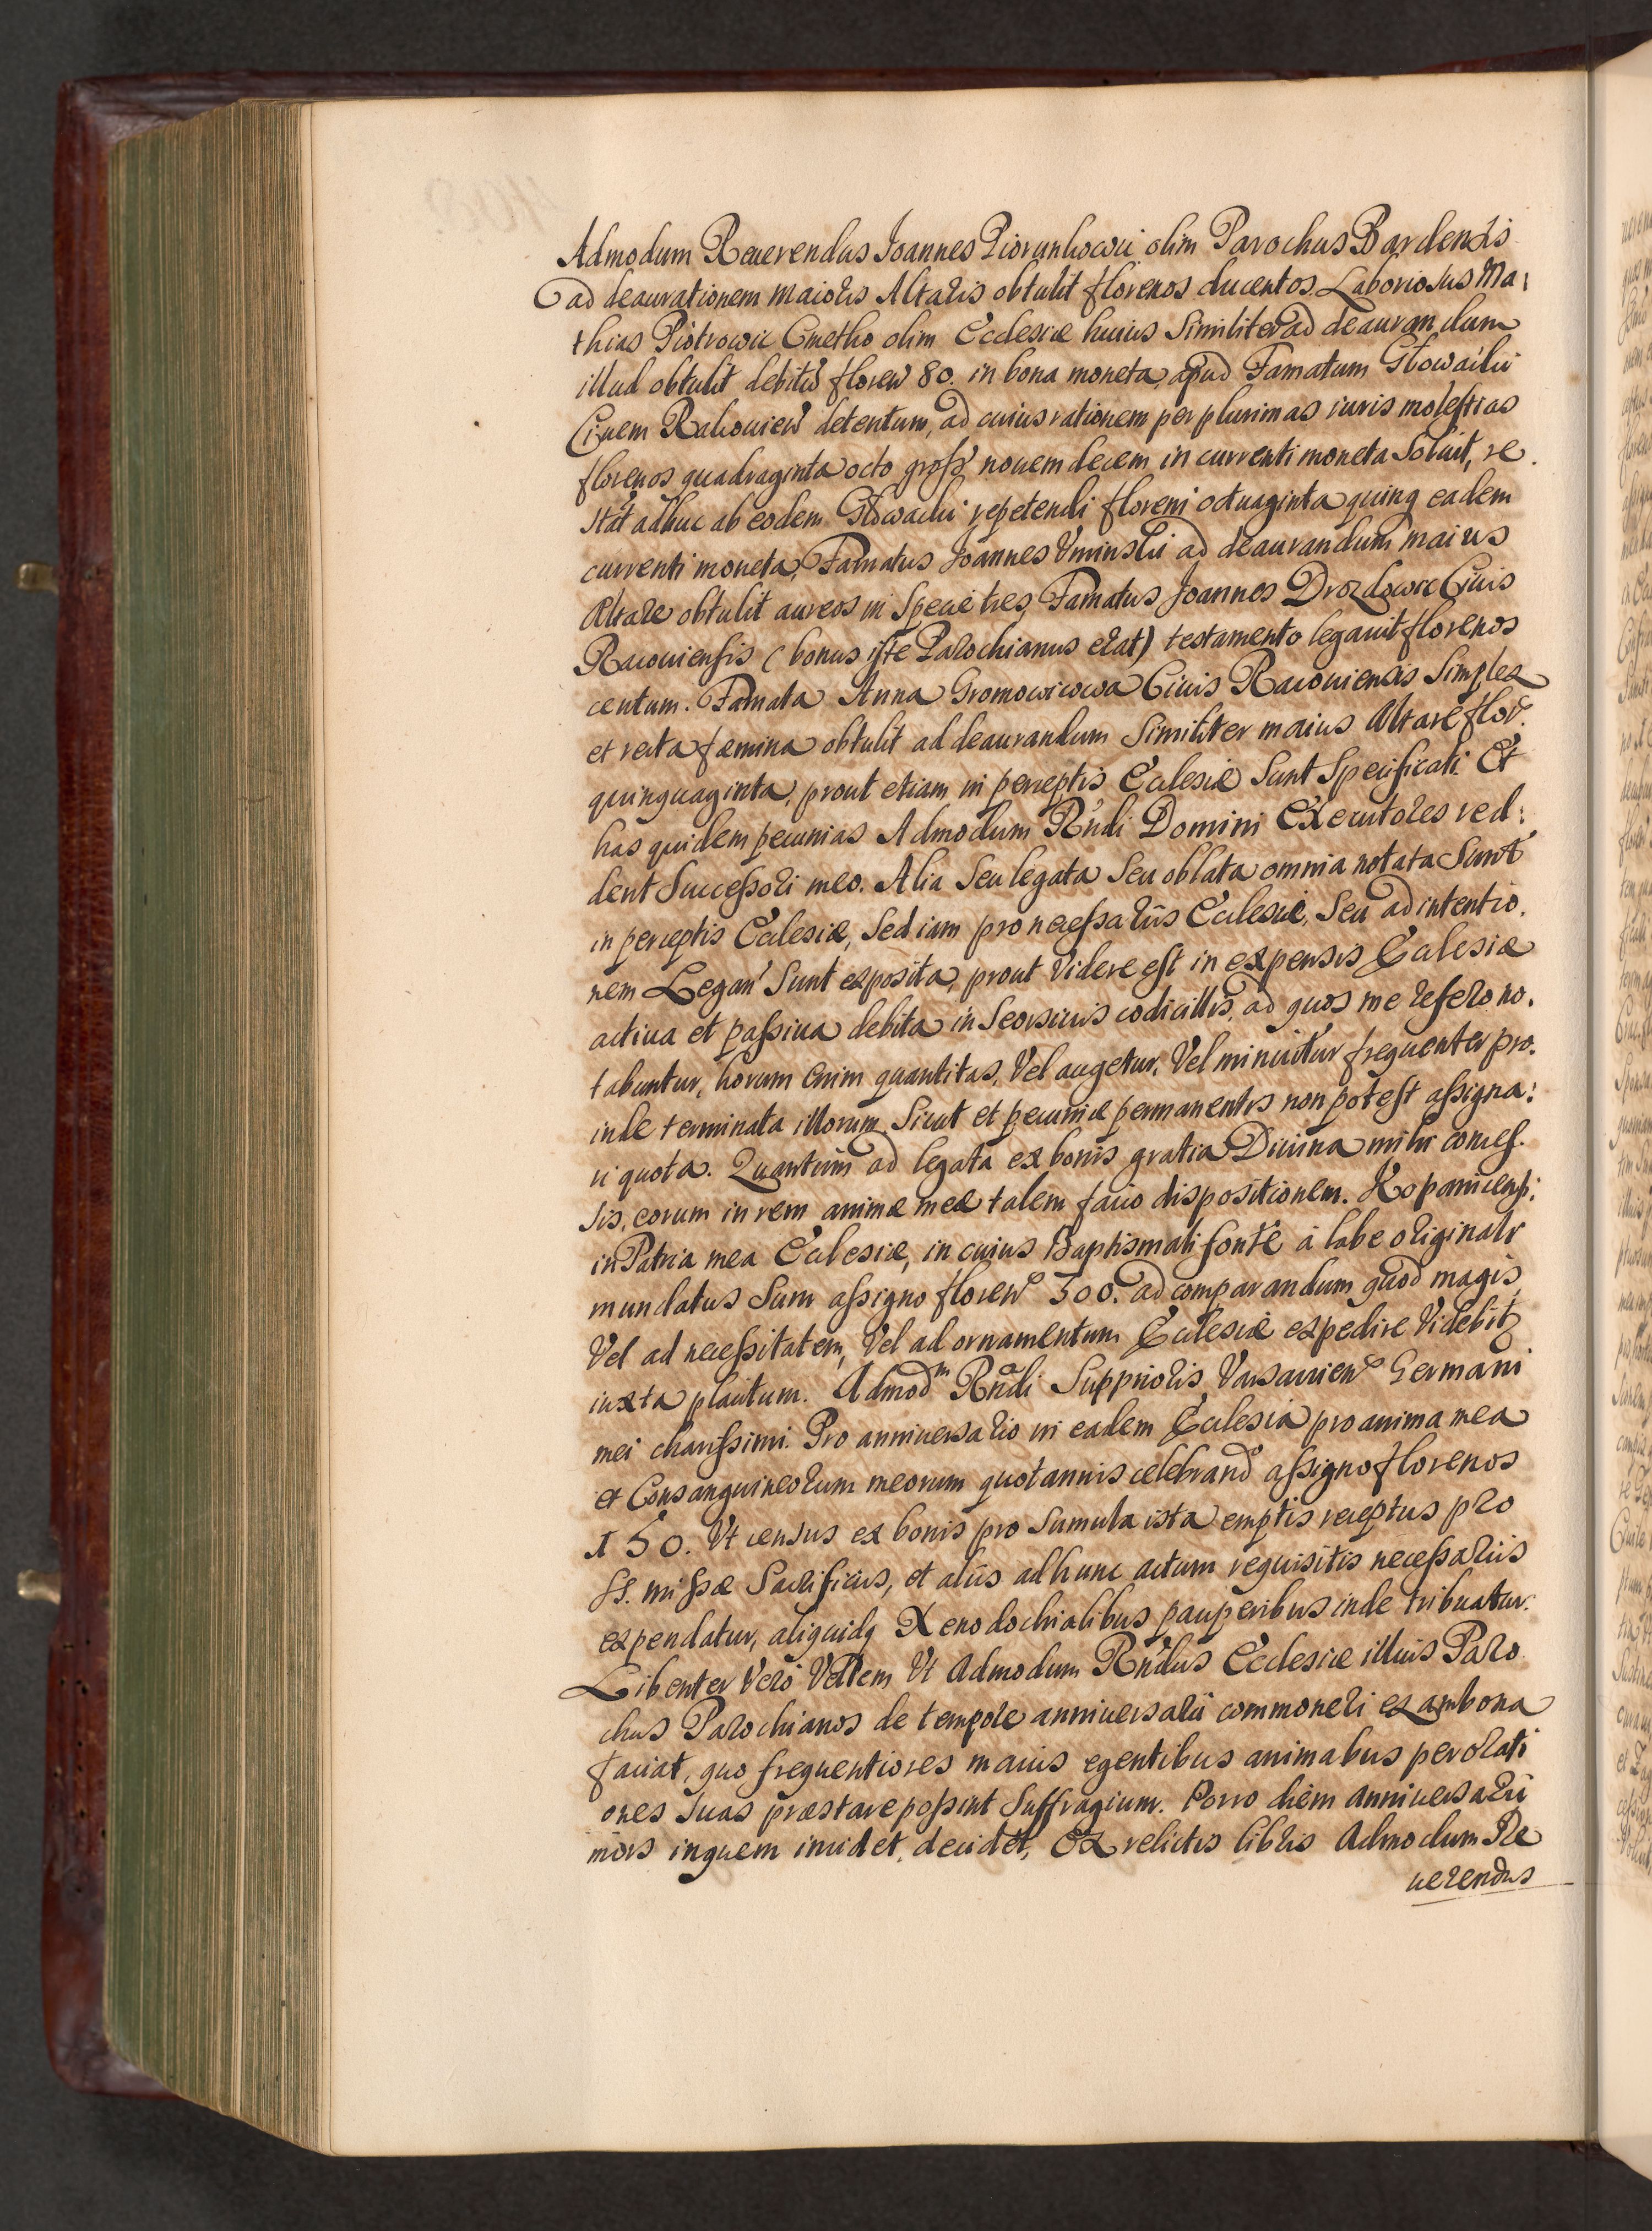 Admodum Reuerendus Joannes Piorunkowic olim Parochus Bardensis
ad deaurationem maioris Altaris obtulit florenos ducentos. Laboriosus Ma:
thias Piotrowic Cmetho olim Ecclesiæ huius similiter ad deaurandum
illud obtulit debitū floren 80. in bona moneta, apud Famatum Głowacki
Ciuem Rakouien detentum, ad cuius rationem per plurimas iuris molestias
florenos quadraginta octo gross nouem decem in currenti moneta soluit, re
stat adhuc ab eodem Głowacki repetendi floreni octuaginta quinq eadem
currenti moneta, Famatus Joannes Vminski ad deaurandum maius
Altare obtulit aureos in specie tres, Famatus Joannes Drozdowic Ciuis
Racouiensis (bonus iste Parochianus erat) testamento legauit florenos
centum. Famata Anna Gromowicowa Ciuis Racouiensis simplex
et recta fæmina obtulit ad deaurandum similiter maius Altare flor.
quinquaginta, prout etiam in perceptis Ecclesiæ sunt specificati. Et
has quidem pecunias Admodum Rndi Domini Executores red:
dent Successori meo. Alia seu legata seu oblata omnia notata sunt
in perceptis Ecclesiæ, sed iam pro necessariis Ecclesiæ, seu ad intentio.
nem Legan sunt exposita, prout videre est in expensis Ecclesiæ
actiua et passiua debita in seorsiuis codicillis, ad quos me refero no.
tabuntur, horum enim quantitas, vel augetur, vel minuitur frequenter pro.
inde terminata illorum sicut et pecuniæ permanentis non potest assigna:
ri quota. Quantum ad legata ex bonis gratia Diuina mihi conces.
sis, eorum in rem animæ meæ talem facio dispositionem. Kopanicensi:
in Patria mea Ecclesiæ, in cuius Baptismali fonte à labe originali
mundatus sum assigno floren 300. ad comparandum quod magis
vel ad necessitatem, vel ad ornamentum Ecclesiæ expedire videbit
iuxta placitum. Admodm Rndi Supprioris Varsauien Germani
mei charissimi. Pro anniuersario in eadem Ecclesia pro anima mea
et Consanguineorum meorum quotannis celebrand assigno florenos
150. Vt census ex bonis pro sumula ista emptis receptus pro
ss. missæ sacrificiis, et aliis ad hunc actum requisitis necessariis
expendatur, aliquidq Xenodochialibus pauperibus inde tribuatur.
Libenter vero vellem vt Admodum Rndus Ecclesiæ illius Paro
chus Parochianos de tempore anniuersarii commoneri ex ambona
faciat, quo frequentiores maius egentibus animabus per orati
ones suas præstare possint suffragium. Porro diem anniuersarii
mors in quem incidet, decidet, Ex relictis libris Admodum Re
uerendus